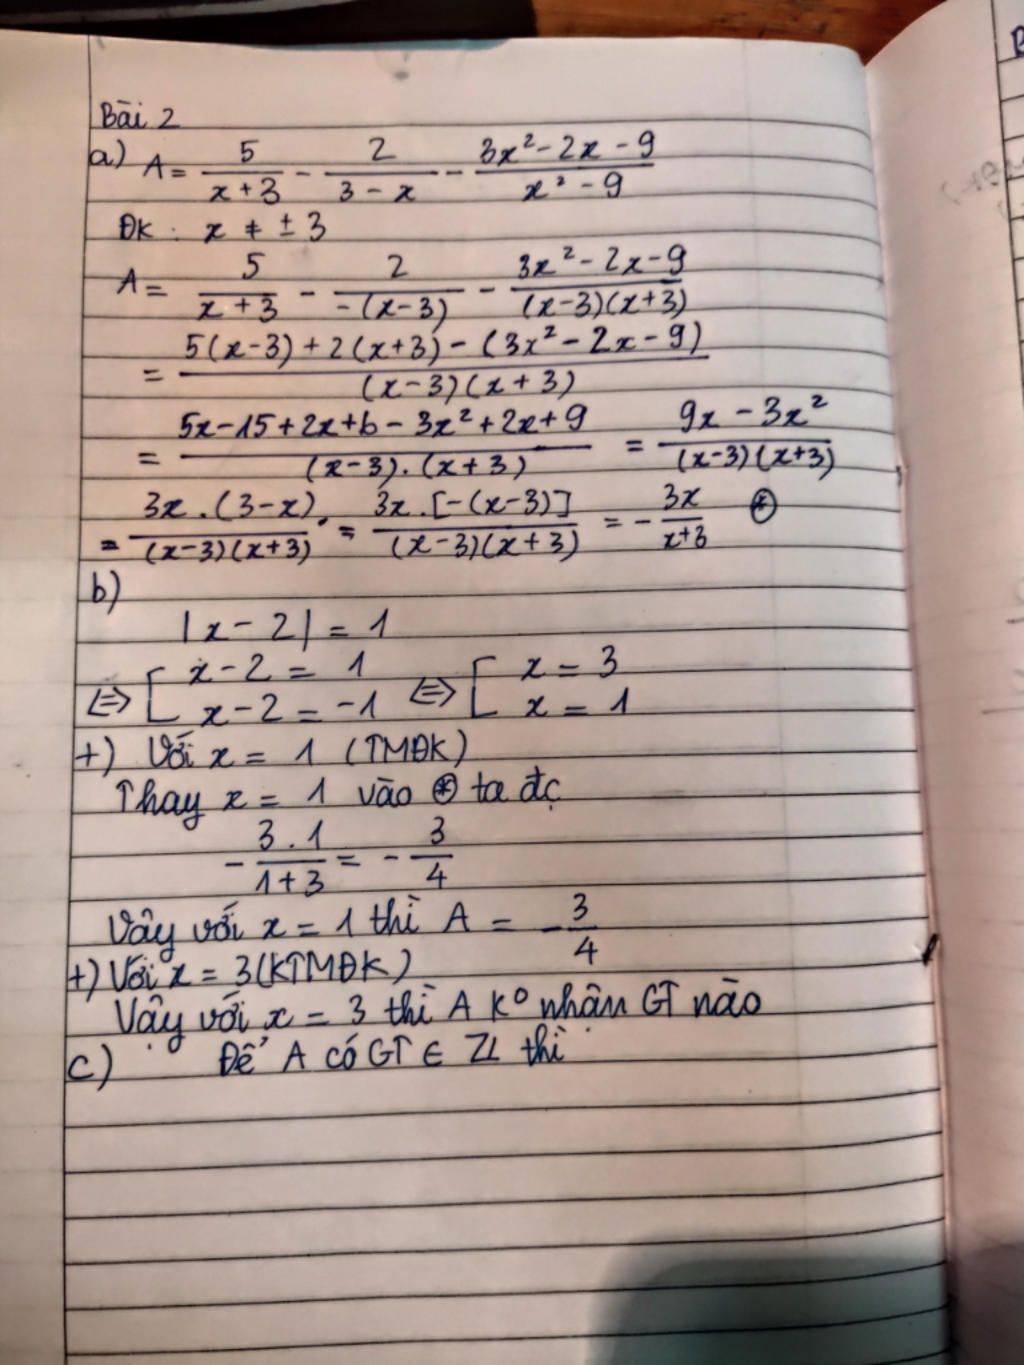 Bài 2
a) A = 5/(x+3) - 2/(3-x) - (3x²-2x-9)/(x²-9)
ĐK : x ≠ ± 3
A = 5/(x+3) - 2/(-(x-3)) - (3x²-2x-9)/((x-3)(x+3))
= (5(x-3)+2(x+3)-(3x²-2x-9))/((x-3)(x+3))
= (5x-15+2x+6-3x²+2x+9)/((x-3).(x+3)) = (9x-3x²)/((x-3)(x+3))
= (3x.(3-x))/((x-3)(x+3)) = (3x.[-(x-3)])/((x-3)(x+3)) = - 3x/(x+3) ⊛
b)
|x-2| = 1
⇔ [ x-2 = 1 ; x-2 = -1 ⇔ [ x = 3 ; x = 1
+) Với x = 1 (TMĐK)
Thay x = 1 vào ⊛ ta đc
- (3.1)/(1+3) = - 3/4
Vậy với x = 1 thì A = - 3/4
+) Với x = 3 (KTMĐK)
Vậy với x = 3 thì A K° nhận GT nào
c) Để A có GT ∈ Z thì